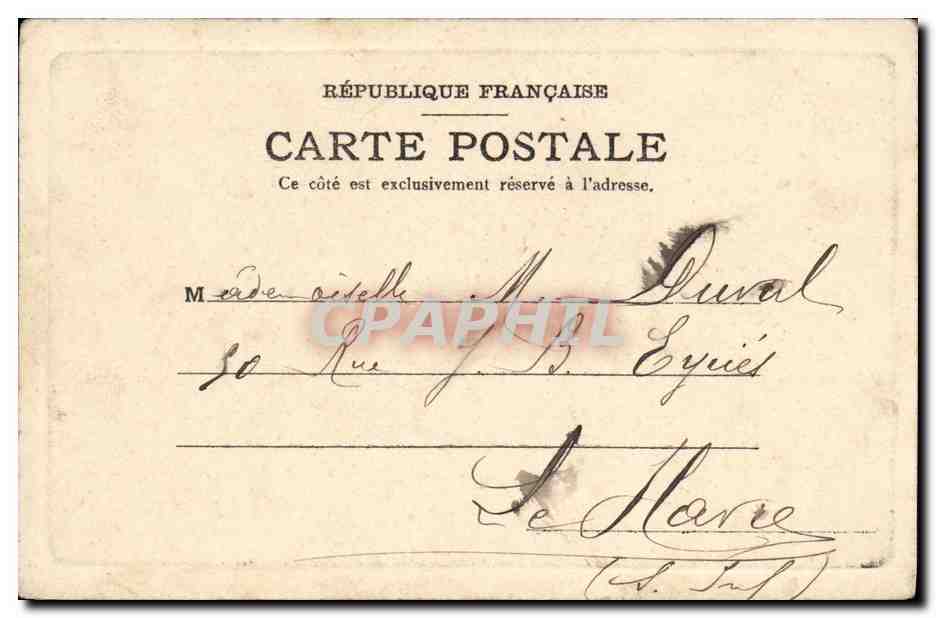 RÉPUBLIQUE FRANÇAISE
CARTE POSTALE
Ce côté est exclusivement réservé à l'adresse.
Mademoiselle M. Duval
CPAPHIL
50 Rue J. B. Eyriés
Le Havre
(S. Inf)